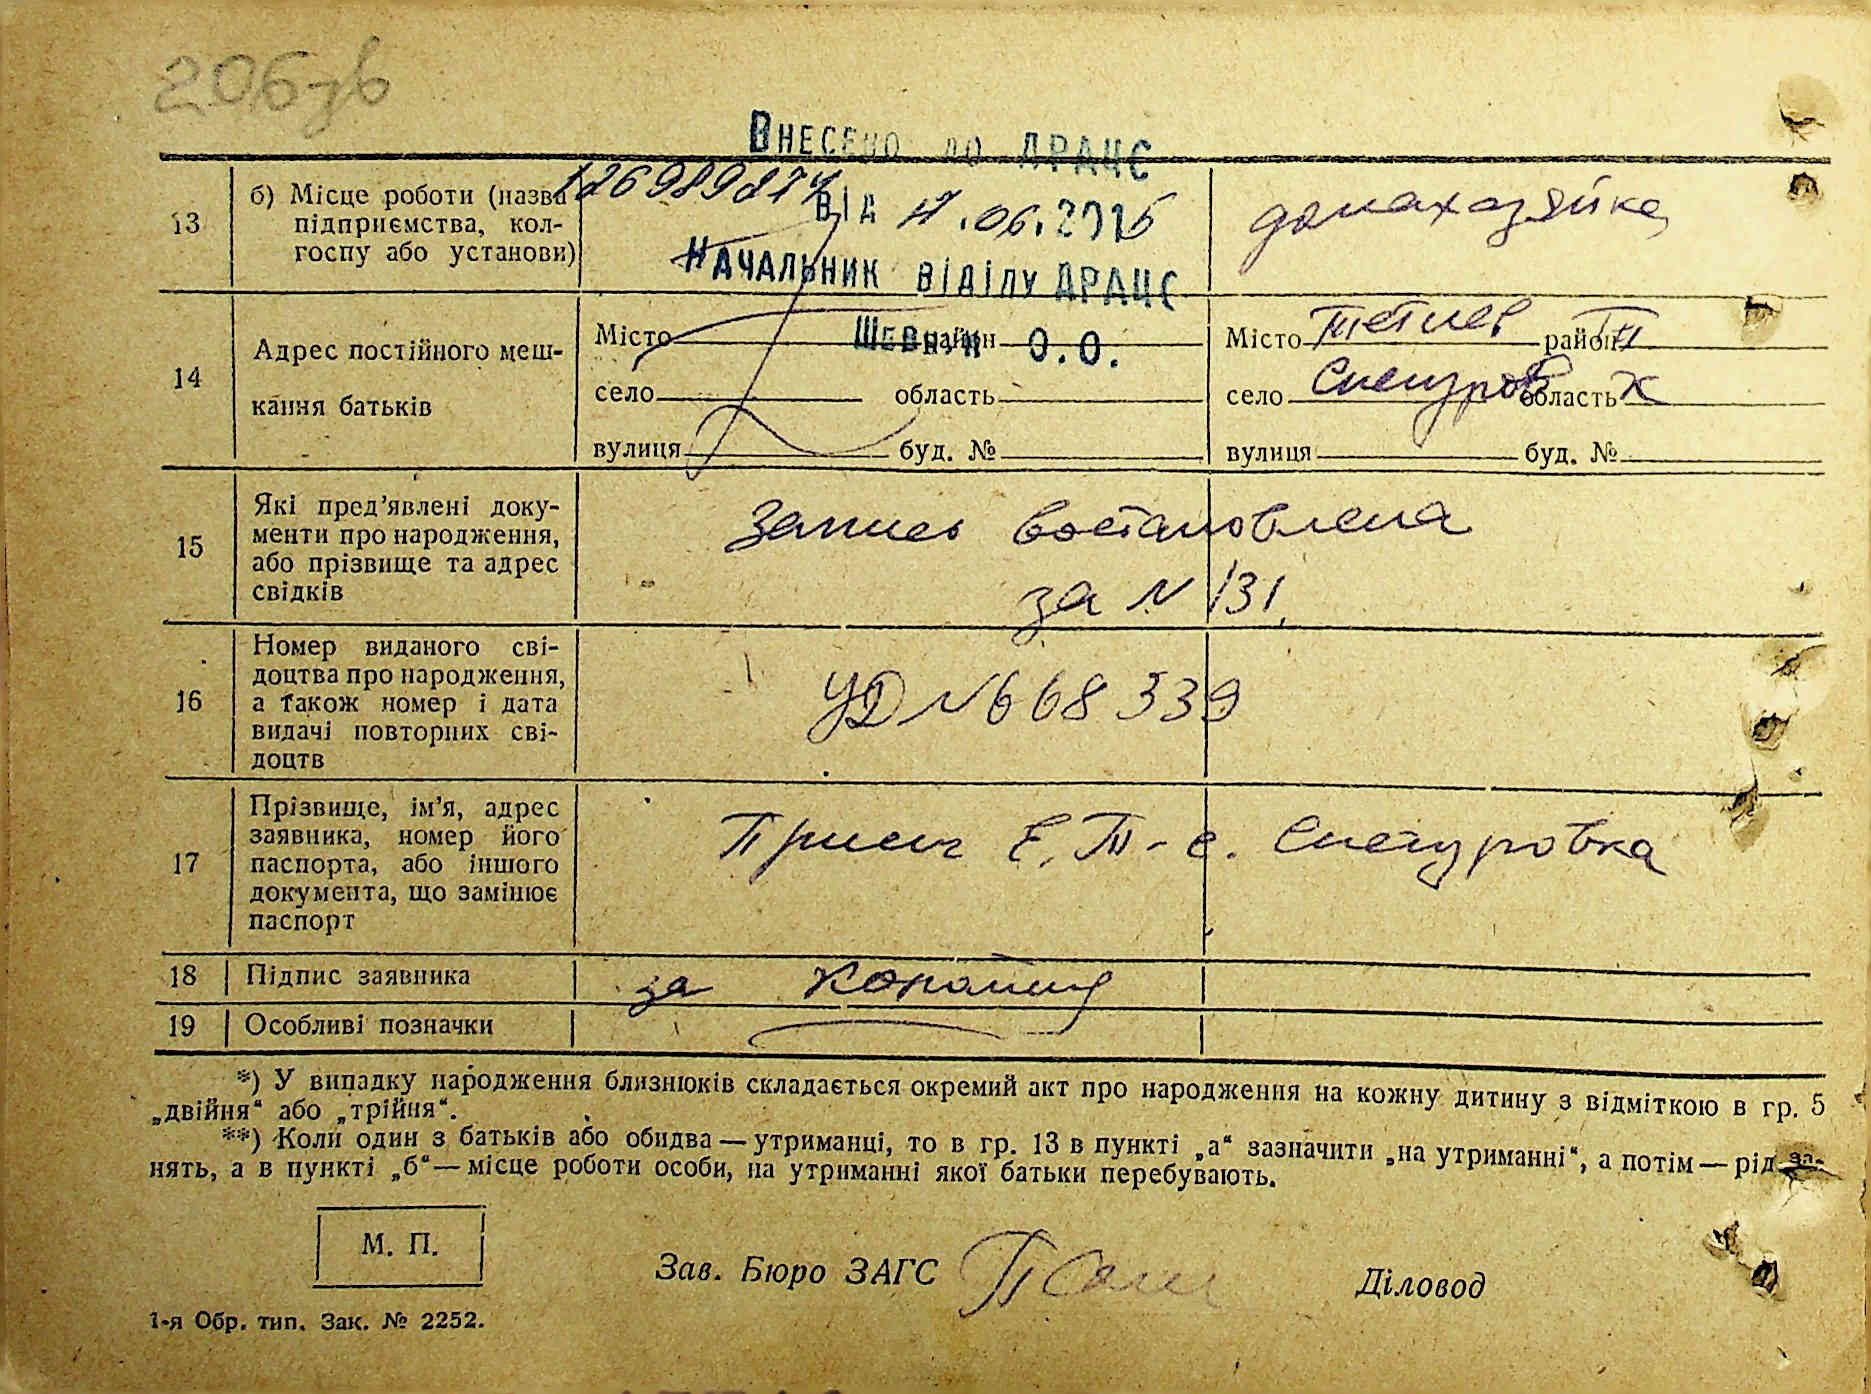 206
Внесено до ДРАЦС
126989874
від 4.06.2016
Начальник відділу ДРАЦС
Шевчук О.О.
13
б) Місце роботи (назва
підприємства, кол-
госпу або установи)
домахазяйка
14
Адрес постійного меш-
кання батьків
Місто район
село область
вулиця буд. №
Місто Тетиев район
село Снегуров область К
вулиця буд. №
15
Які пред’явлені доку-
менти про народження,
або прізвище та адрес
свідків
Запись востановлена
за N 131.
16
Номер виданого сві-
доцтва про народження,
а також номер і дата
видачі повторних сві-
доцтв
УД N 668339
17
Прізвище, ім’я, адрес
заявника, номер його
паспорта, або іншого
документа, що замінює
паспорт
Е. Т- с. Снегуровка
18
Підпис заявника
за
19
Особливі позначки
*) У випадку народження близнюків складається окремий акт про народження на кожну дитину з відміткою в гр. 5
„двійня“ або „трійня“.
**) Коли один з батьків або обидва — утриманці, то в гр. 13 в пункті „а“ зазначити „на утриманні“, а потім — рід за-
нять, а в пункті „б“ — місце роботи особи, на утриманні якої батьки перебувають.
М. П.
Зав. Бюро ЗАГС
Діловод
1-я Обр. тип. Зак. № 2252.